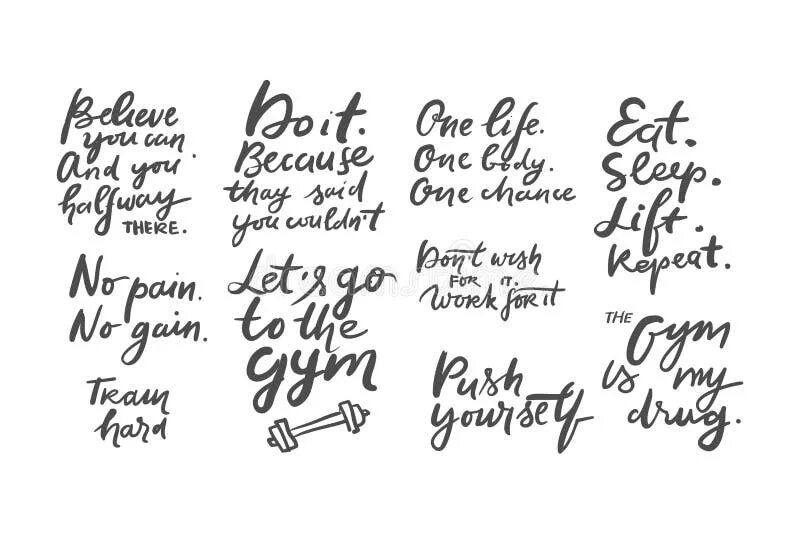 Believe
you can.
And you
halfway
THERE.
No pain.
No gain.
Train
hard
Do it.
Because
thay said
you couldn't
Let's go
to the
gym
One life.
One body.
One chance
Don't wish
FOR IT.
Work for it
Push
yourself
Eat.
Sleep.
Lift.
Repeat.
THE Gym
is my
drug.